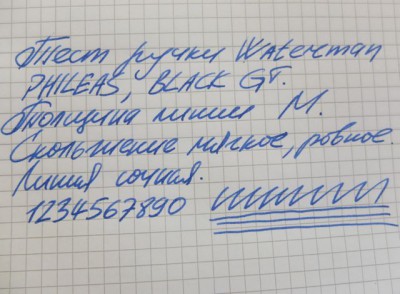 Тест ручки Waterman
PHILEAS, BLACK GT.
Толщина линии М.
Скольжение мягкое, ровное.
Линия сочная.
1234567890